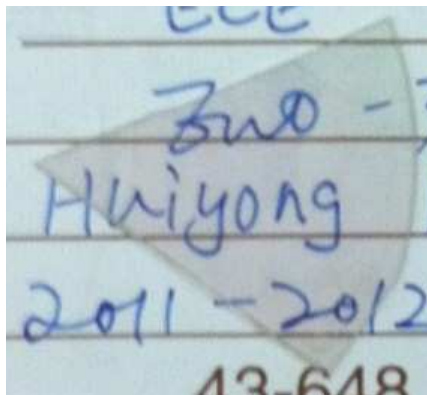 ECE
Zuo -
Huiyong
2011-2012
43-648